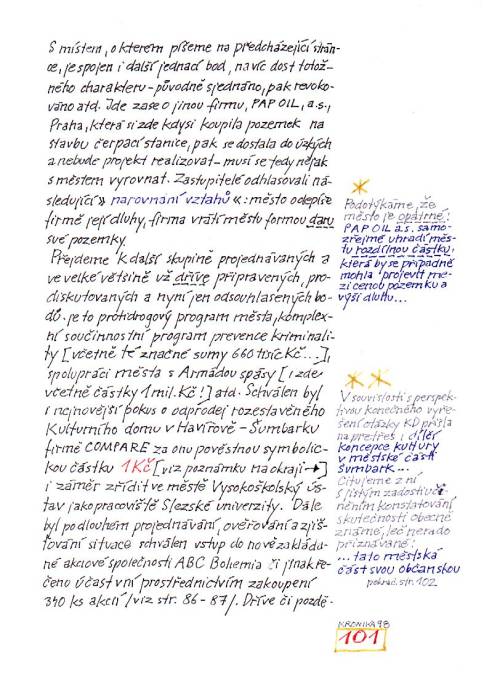 S místem, o kterém píšeme na předcházející strán-
ce, je spojen i další jednací bod, navíc dost totož-
ného charakteru - původně sjednáno, pak revoko-
váno atd. Jde zase o jinou firmu, PAP OIL, a.s.,
Praha, která si zde kdysi koupila pozemek na
stavbu čerpací stanice, pak se dostala do úzkých
a nebude projekt realizovat - musí se tedy nějak
s městem vyrovnat. Zastupitelé odhlasovali ná-
sledující » narovnání vztahů «: město odepíše
firmě její dluhy, firma vrátí městu formou daru
své pozemky.
Přejdeme k další skupině projednávaných a
ve velké většině už dříve připravených, pro-
diskutovaných a nyní jen odsouhlasených bo-
dů. Je to protidrogový program města, komplex-
ní součinnostní program prevence kriminali-
ty [včetně té značné sumy 660 tisíc Kč...],
spolupráci města s Armádou spásy [i zde
včetně částky 1 mil. Kč!] atd. Schválen byl
i nejnovější pokus o odprodej rozestavěného
Kulturního domu v Havířově - Šumbarku
firmě COMPARE za onu pověstnou symbolic-
kou částku 1 Kč [viz poznámku na okraji →]
i záměr zřídit ve městě Vysokoškolský ús-
tav jako pracoviště Slezské univerzity. Dále
byl po dlouhém projednávání, ověřování a zjiš-
ťování situace schválen vstup do nově zakláda-
né akciové společnosti ABC Bohemia či jinak ře-
čeno účast v ní prostřednictvím zakoupení
340 ks akcií /viz str. 86 - 87/. Dříve či pozdě-
*
Podotýkáme, že
město je opatrné:
PAP OIL a.s. samo-
zřejmě uhradí měs-
tu rozdílnou částku,
která by se případně
mohla projevit me-
zi cenou pozemku a
výší dluhu...
**
V souvislosti s perspek-
tivou konečného vyře-
šení otázky KD přišla
na přetřes i dílčí
koncepce kultury
v městské části
Šumbark...
Citujeme z ní
s jistým zadostiuči-
něním konstatování
skutečností obecně
známé, leč nerado
přiznávané:
... tato městská
část svou občanskou
pokrač. str. 102
KRONIKA 98
101